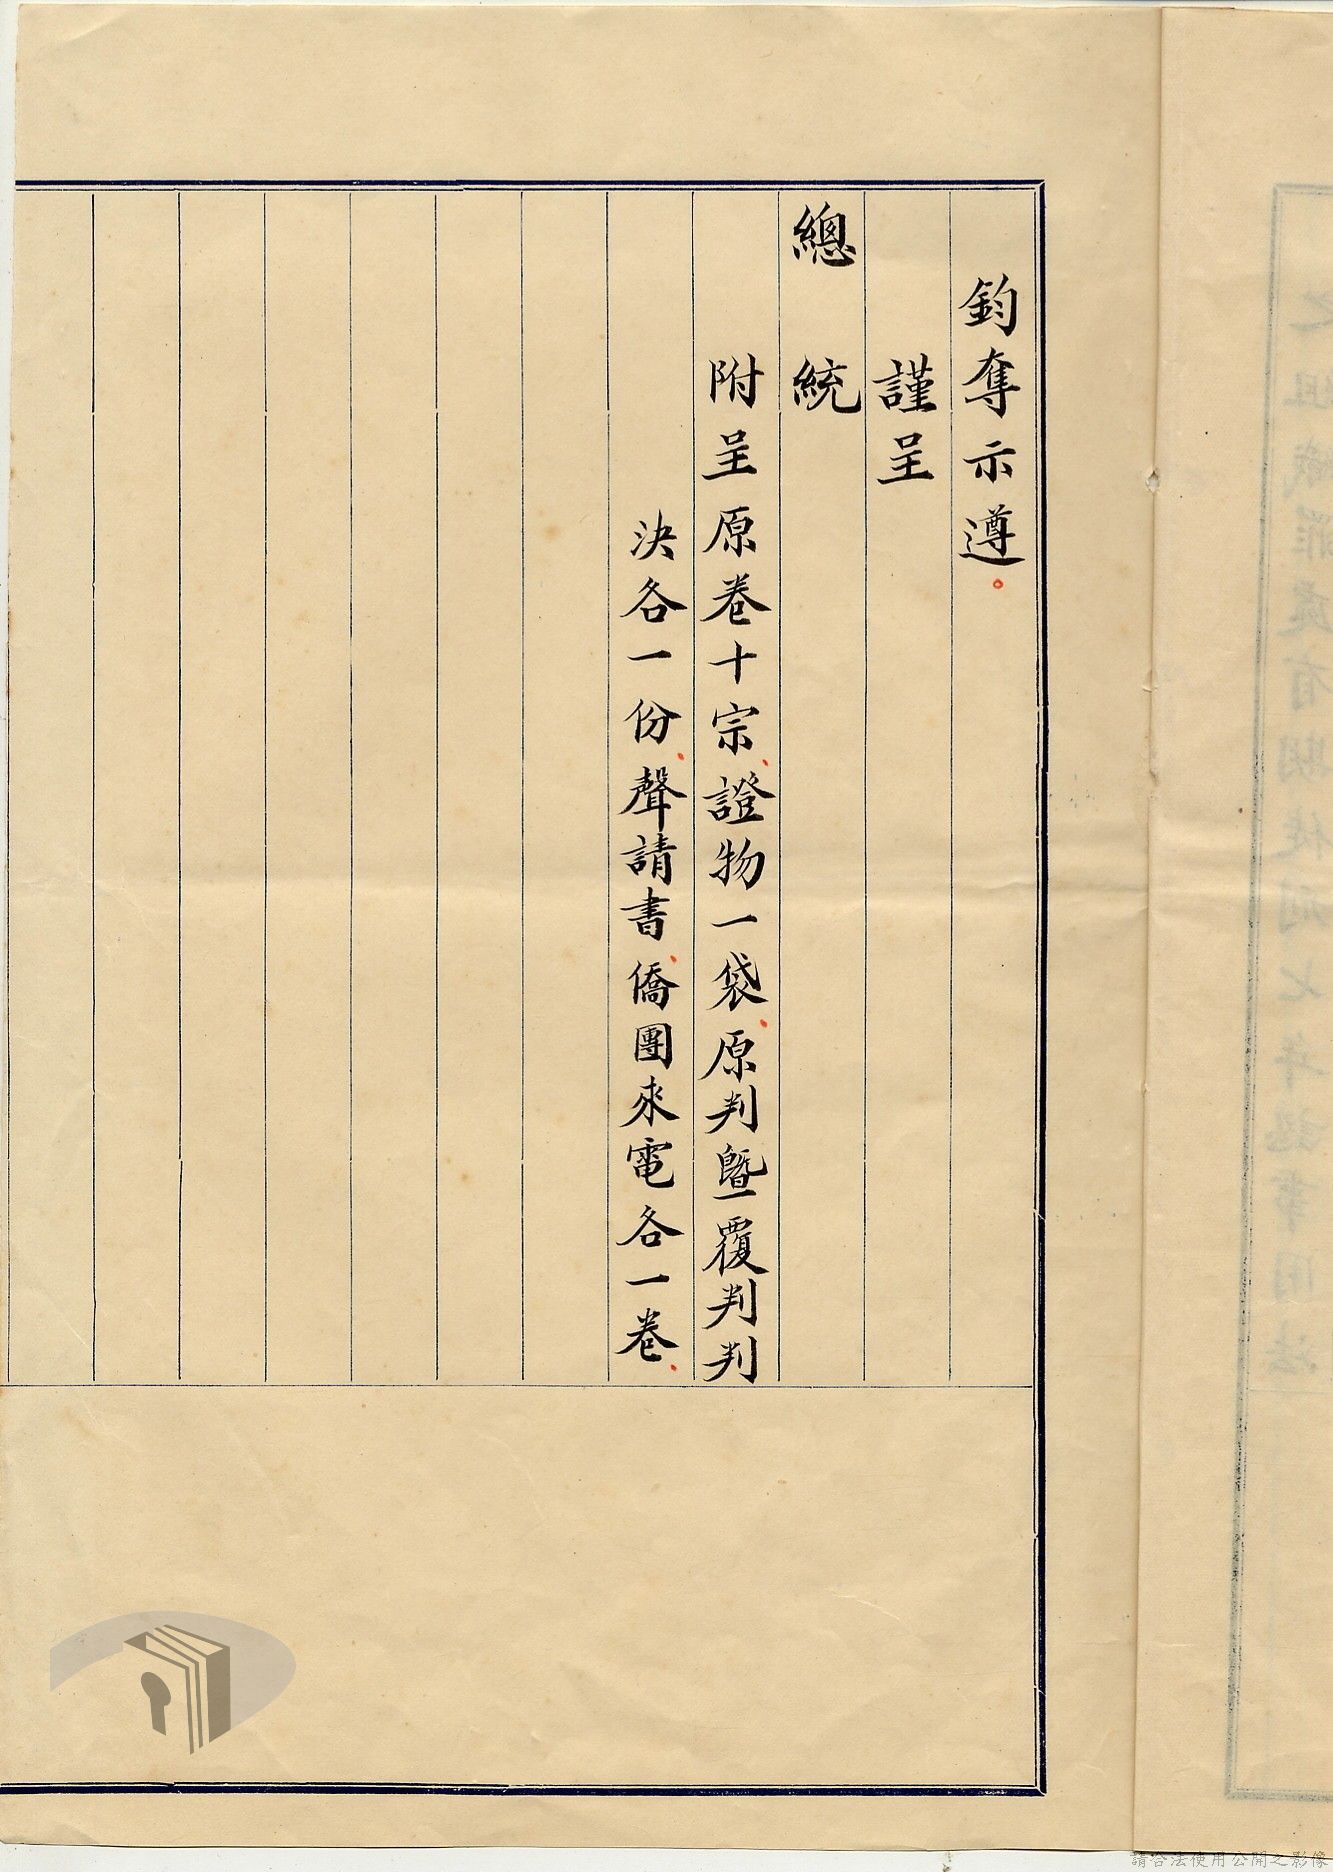 鈞奪示遵。
謹呈
總統
附呈原卷十宗、證物一袋、原判暨覆判判
決各一份、聲請書、僑團來電各一卷、
請合法使用公開之影像